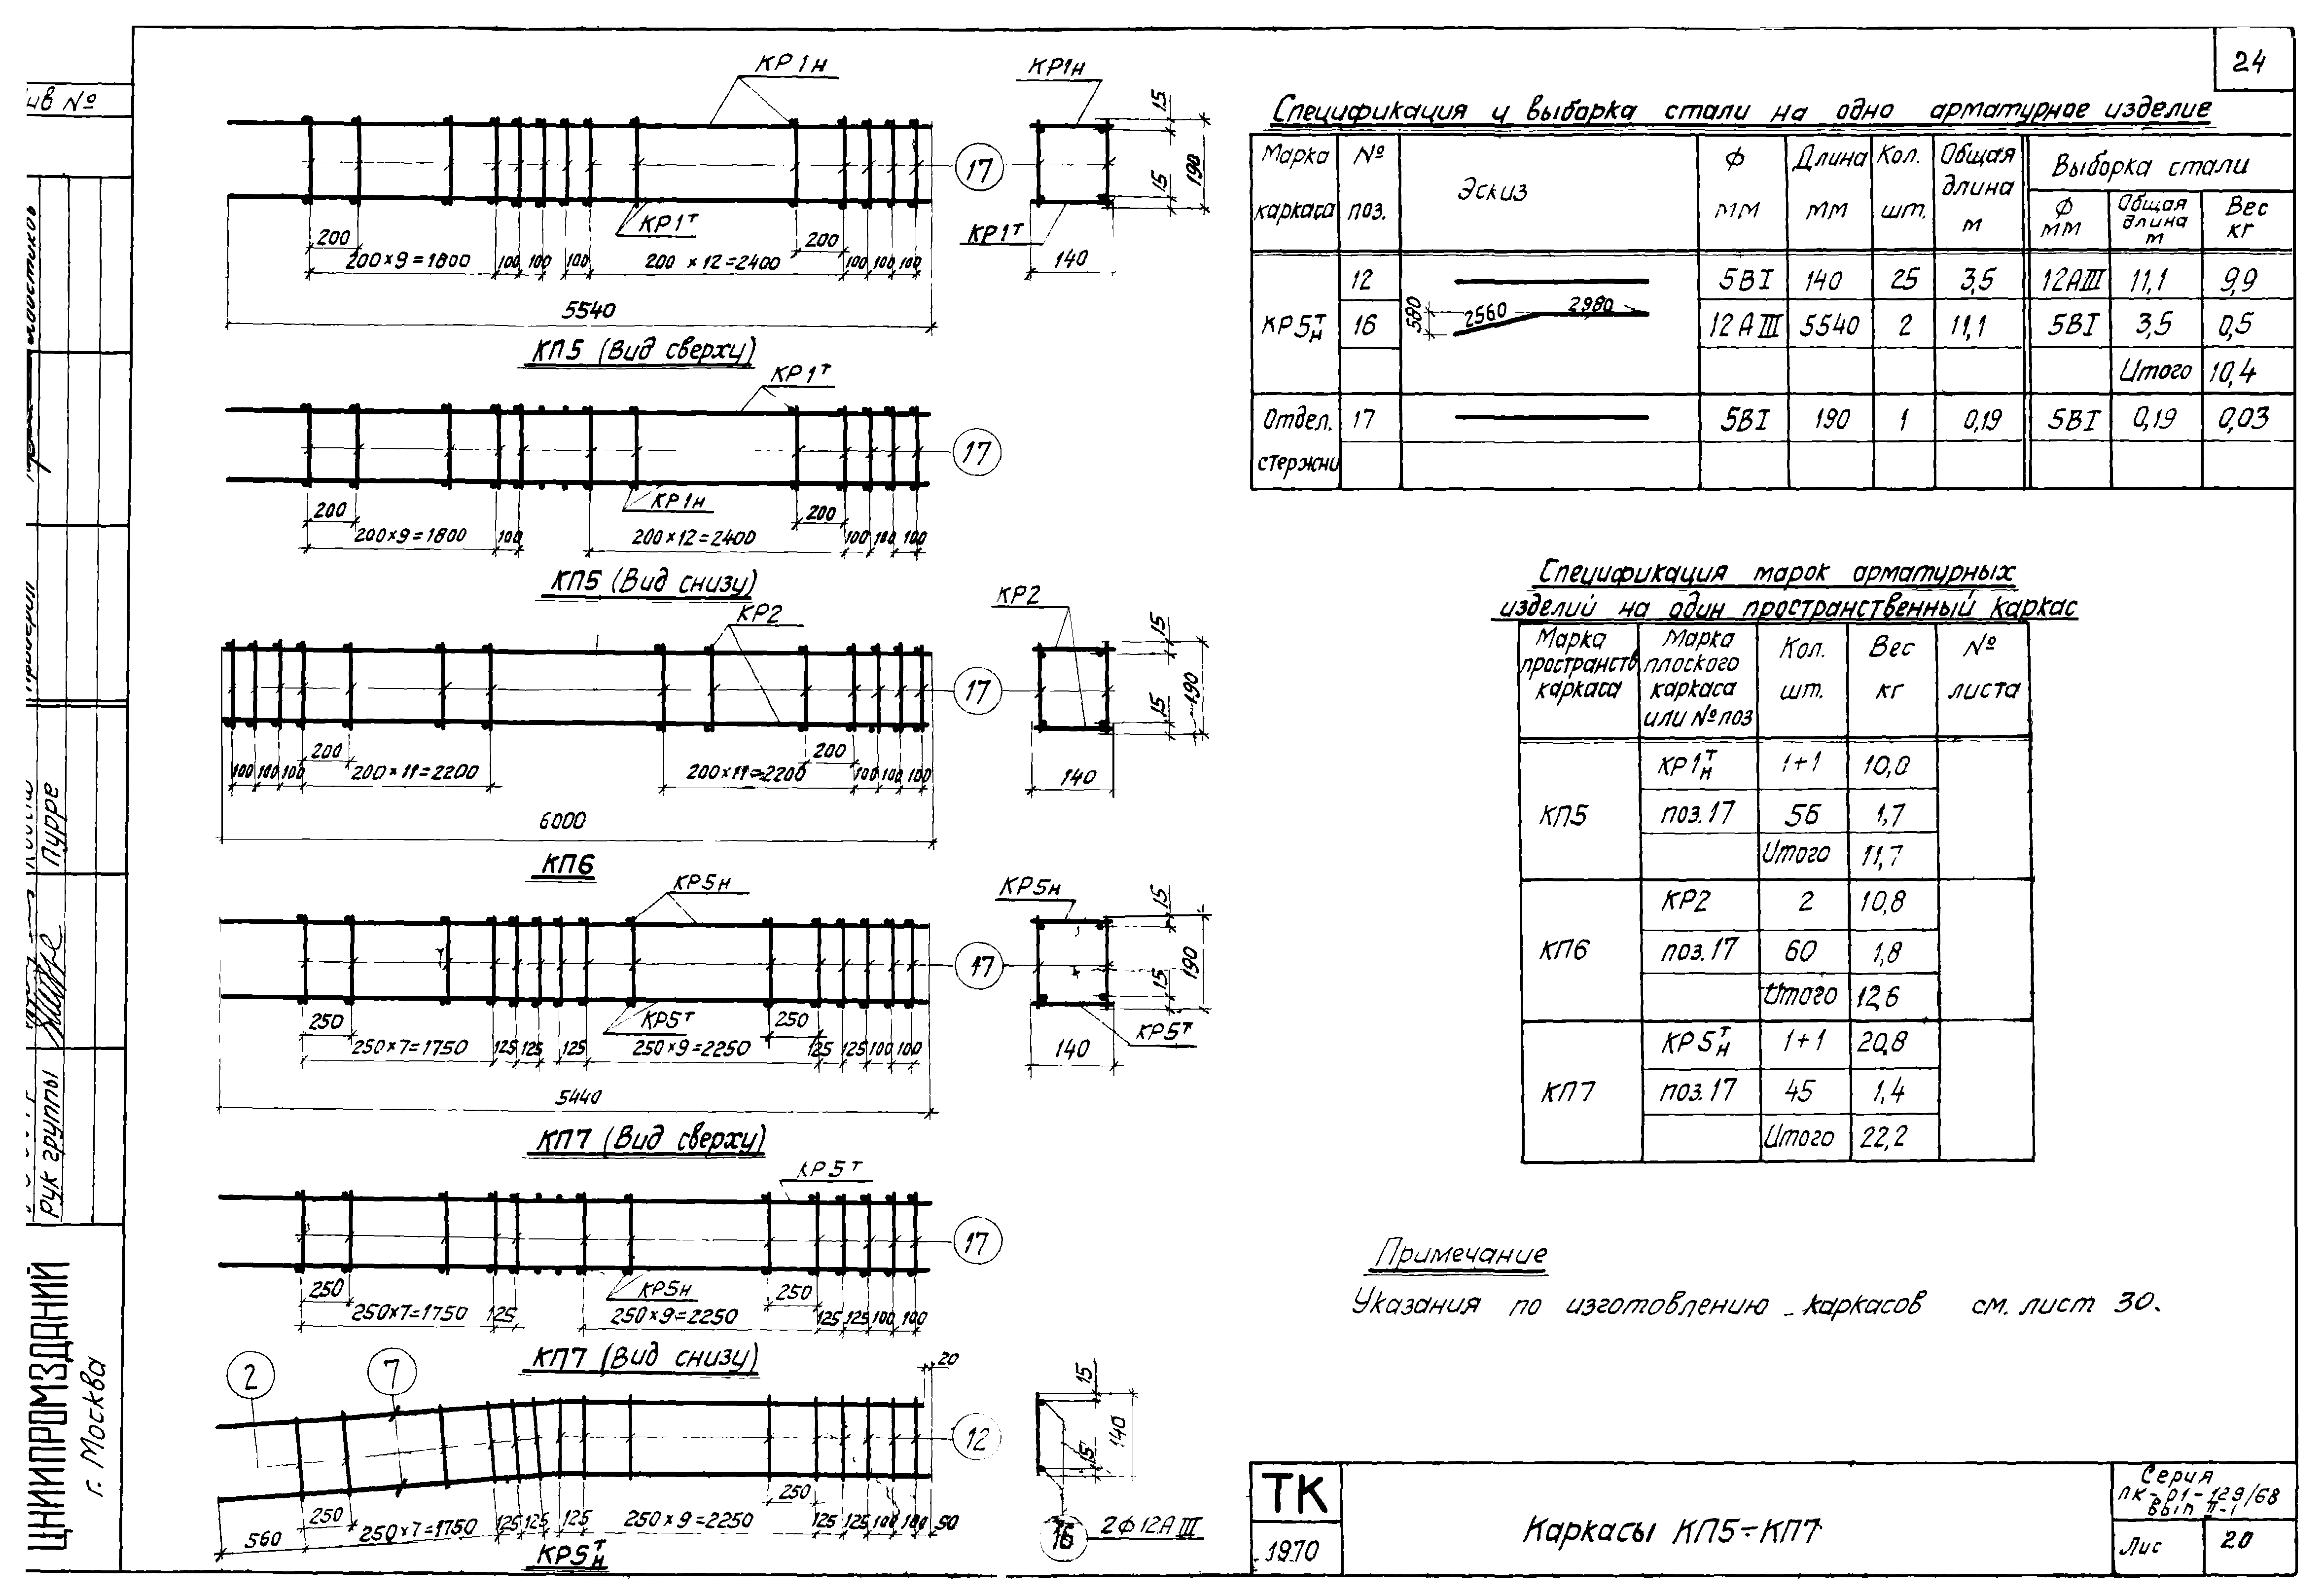 24
Инв №
КР1н
КР1н
15
190
15
17
КР1т
КР1т
200
200
200×9=1800
100
100
100
200 ×12=2400
100
100
100
140
5540
КП5 (Вид сверху)
КР1т
17
КР1н
200
200
200×9=1800
100
200×12=2400
100
100
100
КП5 (Вид снизу)
КР2
КР2
15
17
15
190
200
200
100
100
100
200×11=2200
200×11=2200
100
100
100
140
6000
КП6
КР5н
КР5н
15
17
190
15
КР5т
КР5т
250
250
250×7=1750
125
125
125
250×9=2250
125
125
100
100
140
5440
КП7 (Вид сверху)
КР5т
17
КР5н
250
250
250×7=1750
125
250×9=2250
125
125
100
100
КП7 (Вид снизу)
20
2
7
12
15
15
140
250
250
560
250×7=1750
125
125
125
250×9=2250
125
125
100
100
50
16
2ф12АIII
КР5тн
Спецификация и выборка стали на одно арматурное изделие
Марка каркаса
№ поз.
Эскиз
Ф мм
Длина мм
Кол. шт.
Общая длина м
Выборка стали
Ф мм
Общая длина м
Вес кг
КР5тн
12
5ВI
140
25
3,5
12АIII
11,1
9,9
580
2560
2980
16
12АIII
5540
2
11,1
5ВI
3,5
0,5
Итого
10,4
Отдел. стержни
17
5ВI
190
1
0,19
5ВI
0,19
0,03
Спецификация марок арматурных
изделий на один пространственный каркас
Марка пространств каркаса
Марка плоского каркаса или № поз
Кол. шт.
Вес кг
№ листа
КП5
КР1тн
1+1
10,0
поз.17
56
1,7
Итого
11,7
КП6
КР2
2
10,8
поз.17
60
1,8
Итого
12,6
КП7
КР5тн
1+1
20,8
поз.17
45
1,4
Итого
22,2
Примечание
Указания по изготовлению каркасов см. лист 30.
Проверил
Пурре
Рук группы
ЦНИИПРОМЗДАНИЙ
г. Москва
ТК
1970
Каркасы КП5÷КП7
Серия
ПК-01-129/68
вып II-1
Лис
20